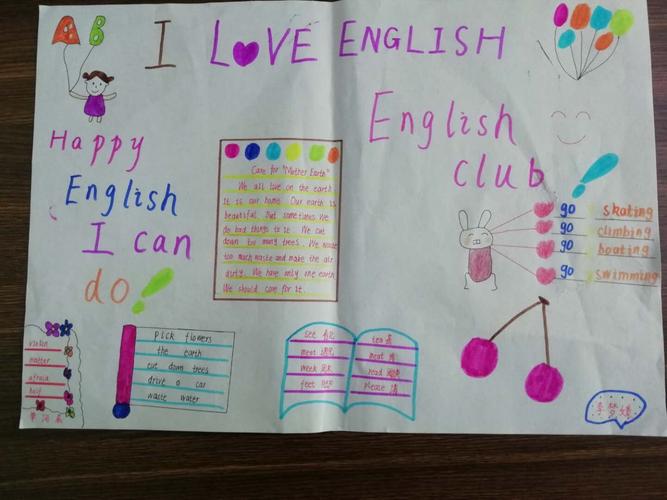 A B
I LOVE ENGLISH
Happy
English
I can
do!
Care for "Mother Earth"
We all live on the earth.
It is our home. Our earth is
beautiful. But sometimes We
do bad things to it. We cut
down too many trees. We waste
too much waste and make the air
dirty. We have only one earth
We should care for it.
English
club!
go skating
go climbing
go boating
go swimming
violin
matter
afraid
pick flowers
the earth
cut down trees
drive a car
waste water
see 看见
meet 遇见
week
feet
tea 茶
meat 肉
read 阅读
please 请